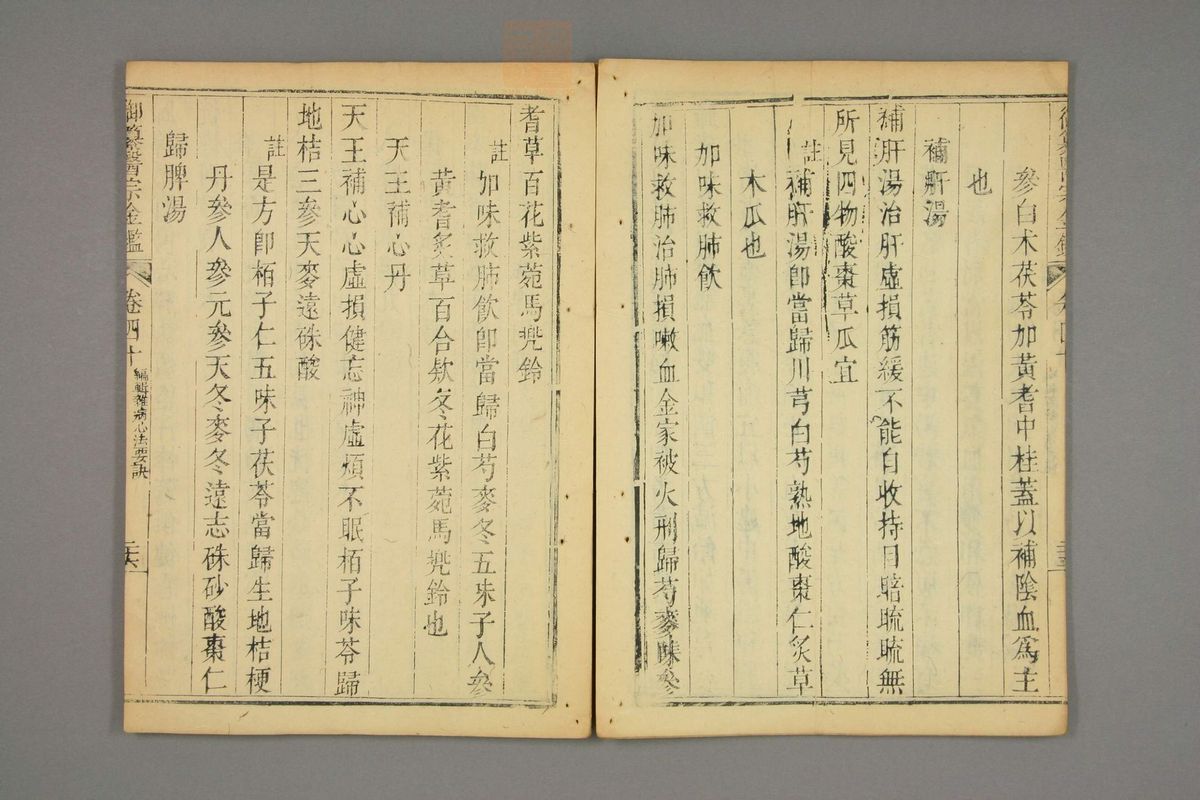 參白朮茯苓加黃耆中桂蓋以補陰血爲主
也
補肝湯
補肝湯治肝虛損筋緩不能自收持目暗䀮䀮無
所見四物酸棗草瓜宜
註補肝湯卽當歸川芎白芍熟地酸棗仁炙草
木瓜也
加味救肺飲
加味救肺治肺損嗽血金家被火刑歸芍麥味參
耆草百花紫菀馬兜鈴
註加味救肺飲卽當歸白芍麥冬五味子人參
黃耆炙草百合欵冬花紫菀馬兜鈴也
天王補心丹
天王補心心虛損健忘神虛煩不眠栢子味苓歸
地桔三參天麥遠硃酸
註是方卽栢子仁五味子茯苓當歸生地桔梗
丹參人參元參天冬麥冬遠志硃砂酸棗仁
歸脾湯
御纂醫宗金鑑 卷四十 編輯雜病心法要訣 二六